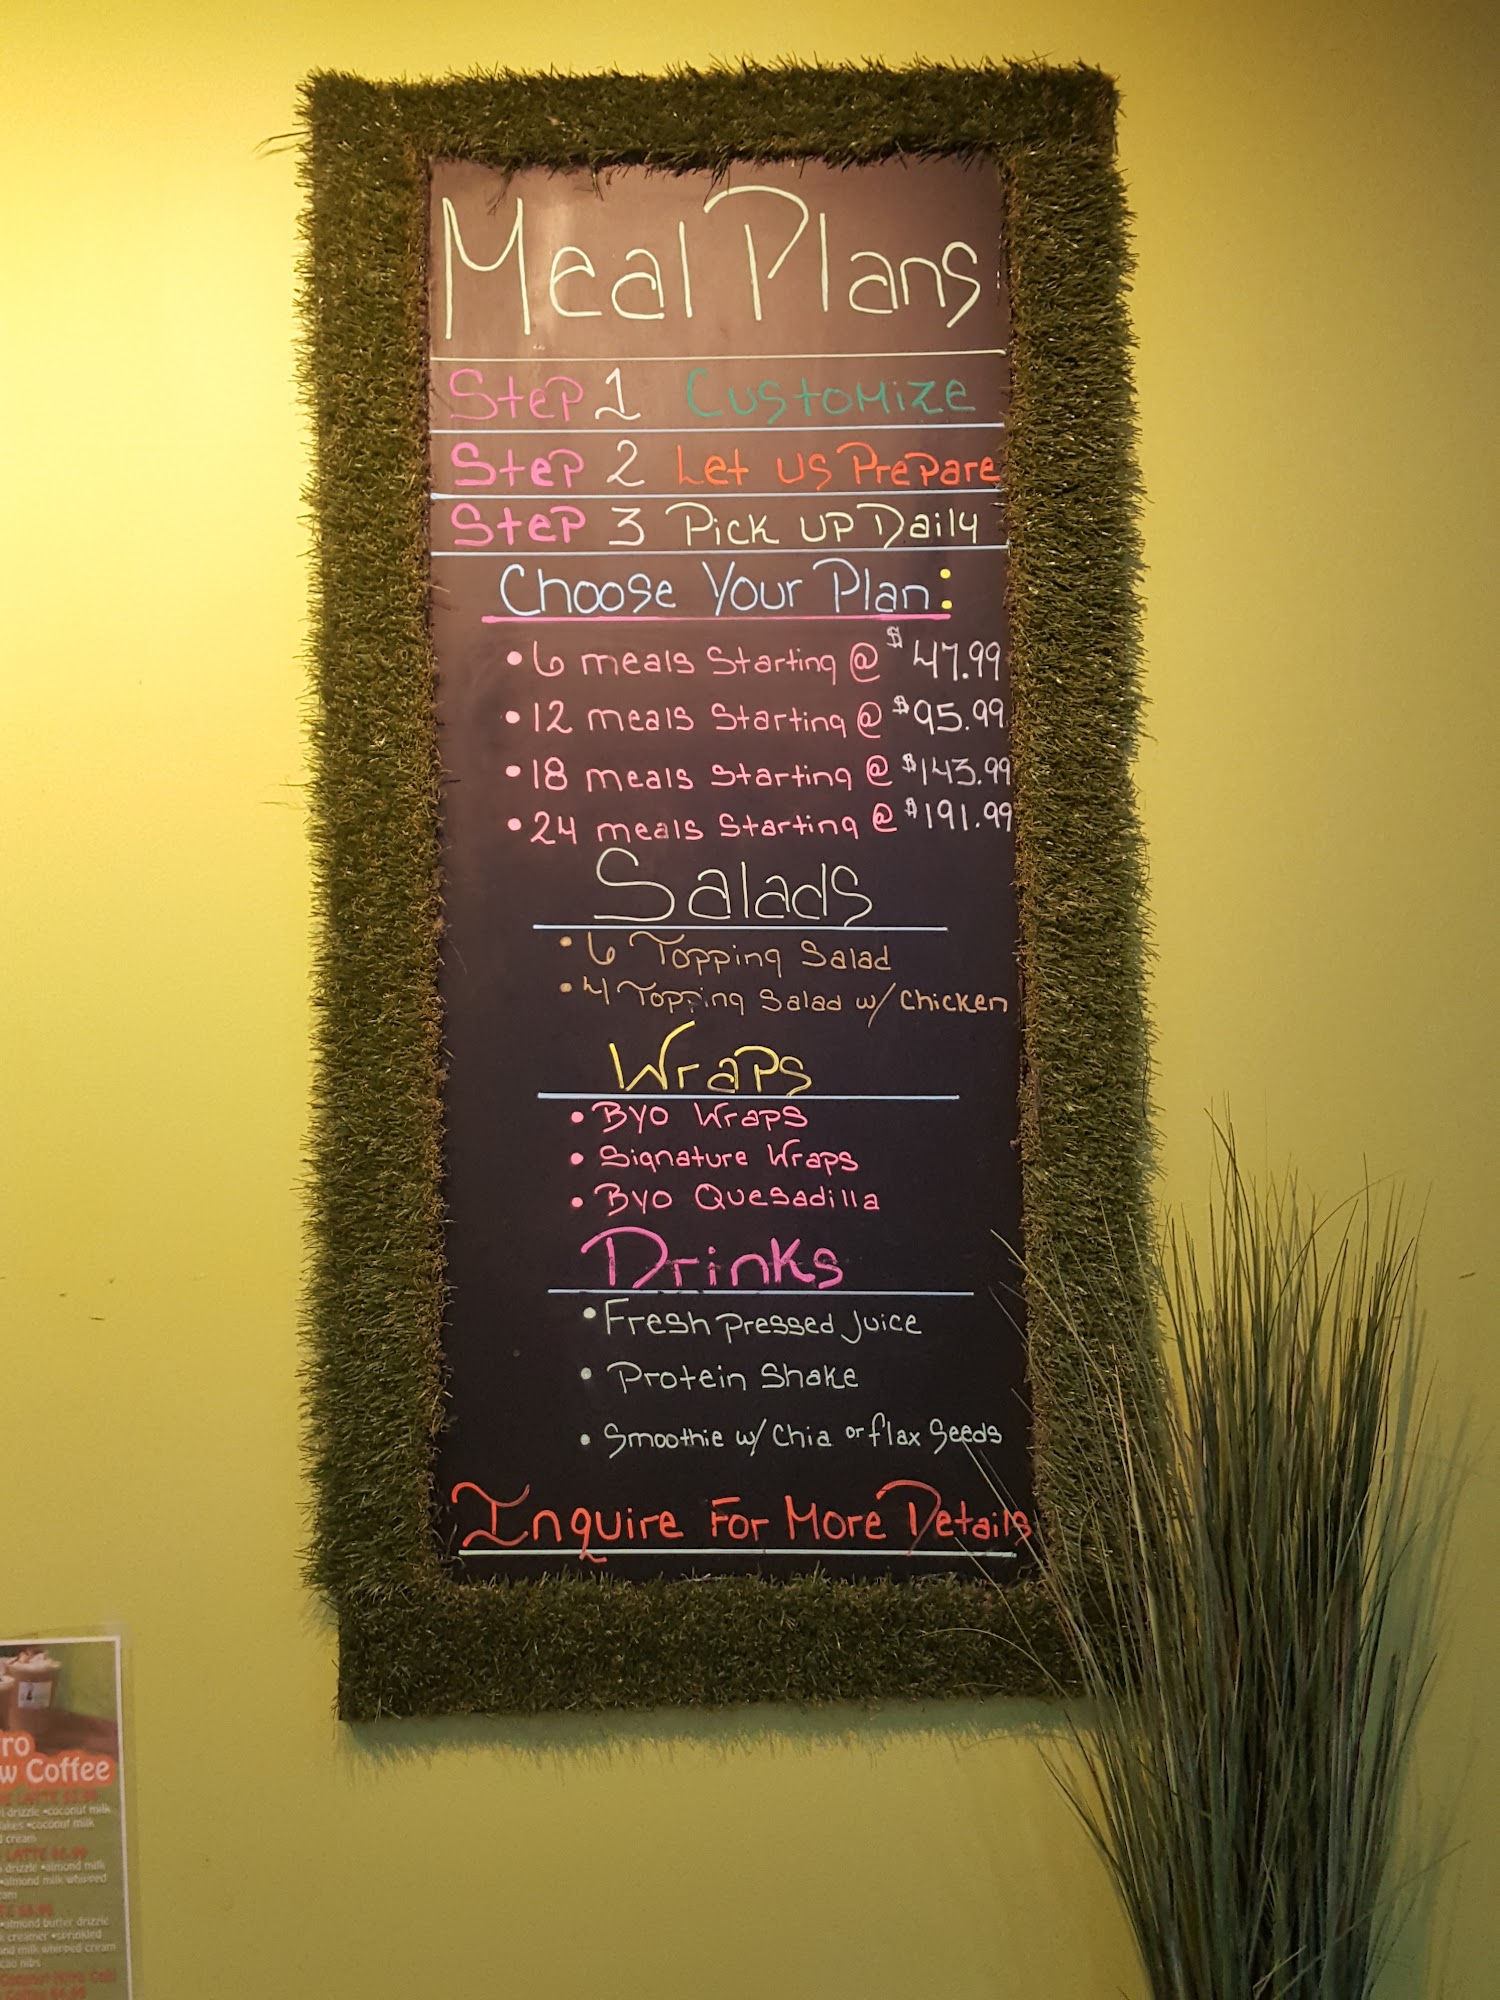 Meal Plans
Step 1 Customize
Step 2 Let us Prepare
Step 3 Pick up Daily
Choose Your Plan:
• 6 meals Starting @ $47.99
• 12 meals Starting @ $95.99
• 18 meals Starting @ $143.99
• 24 meals Starting @ $191.99
Salads
• 6 Topping Salad
• 4 Topping Salad w/ Chicken
Wraps
• BYO Wraps
• Signature Wraps
• BYO Quesadilla
Drinks
• Fresh pressed Juice
• Protein Shake
• Smoothie w/ Chia or flax Seeds
Inquire For More Details
ro
w Coffee
drizzle •coconut milk
•coconut milk
cream
LATTE
drizzle •almond milk
•almond milk whipped
•almond butter drizzle
creamer •sprinkled
milk whipped cream
nibs